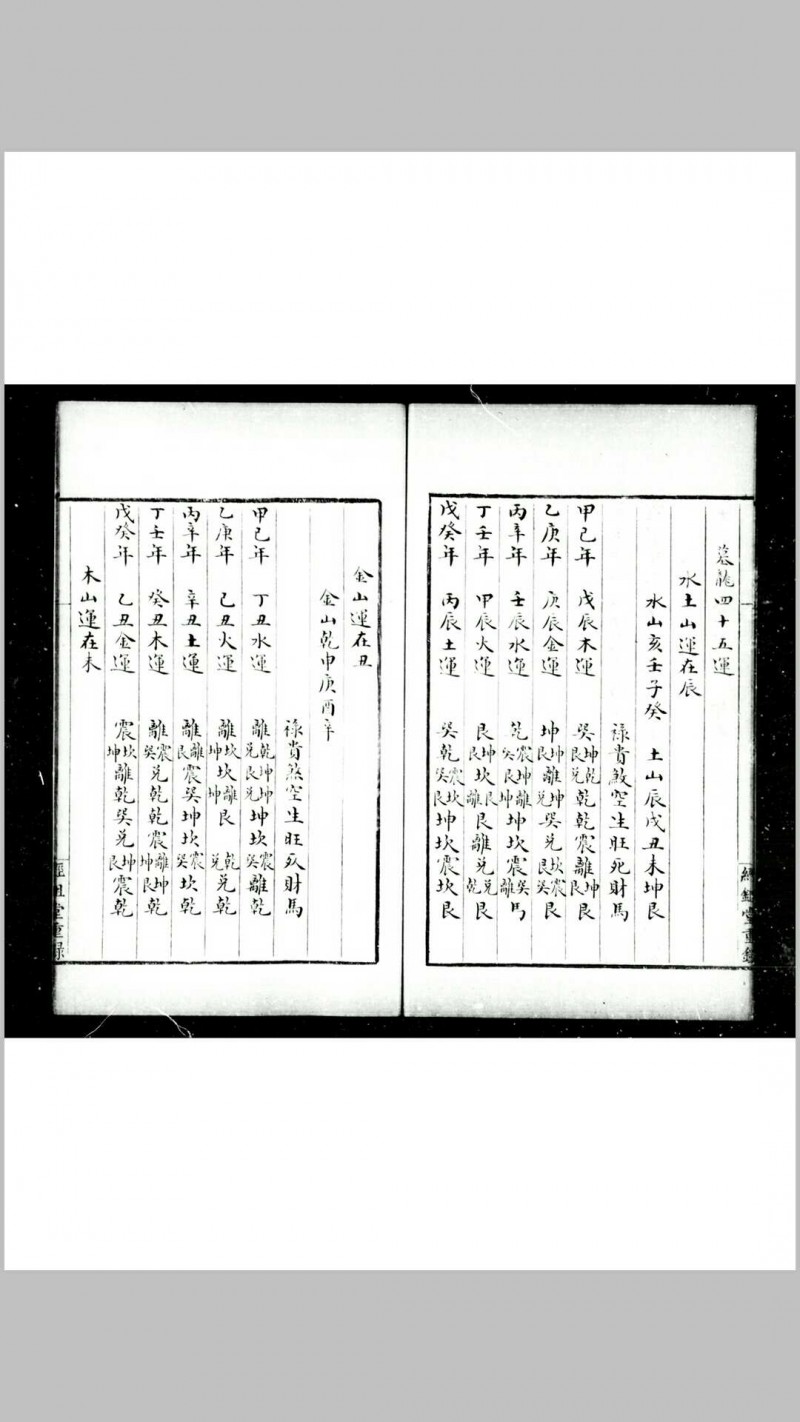 墓龍四十五運
水土山運在辰
水山亥壬子癸 土山辰戌丑未坤艮
祿貴煞空生旺死財馬
甲己年 戊辰木運 乾乾震離坤艮艮
乙庚年 庚辰金運 坤坤艮離坤兑巽兑坎震艮巽艮
丙辛年 壬辰水運 乾震巽艮離坤坤坎震巽離
丁壬年 甲辰火運 艮坤兑坎艮離艮離兑兑乾艮
戊癸年 丙辰土運 巽乾震巽坎艮坤坎震坎艮
經鉏堂重錄
金山運在丑
金山乾申庚酉辛
祿貴煞空生旺死財馬
甲己年 丁丑水運 離乾兑坤坤艮坤兑坤坎震巽離乾
乙庚年 己丑火運 離坎坤坎離坤艮乾兑兑乾
丙辛年 辛丑土運 離離艮震巽坤坎震巽坎乾
丁壬年 癸丑木運 離震巽兑乾乾震離坤坤艮乾
戊癸年 乙丑金運 震坎坤離乾巽兑坤艮震乾
木山運在未
經鉏堂重錄